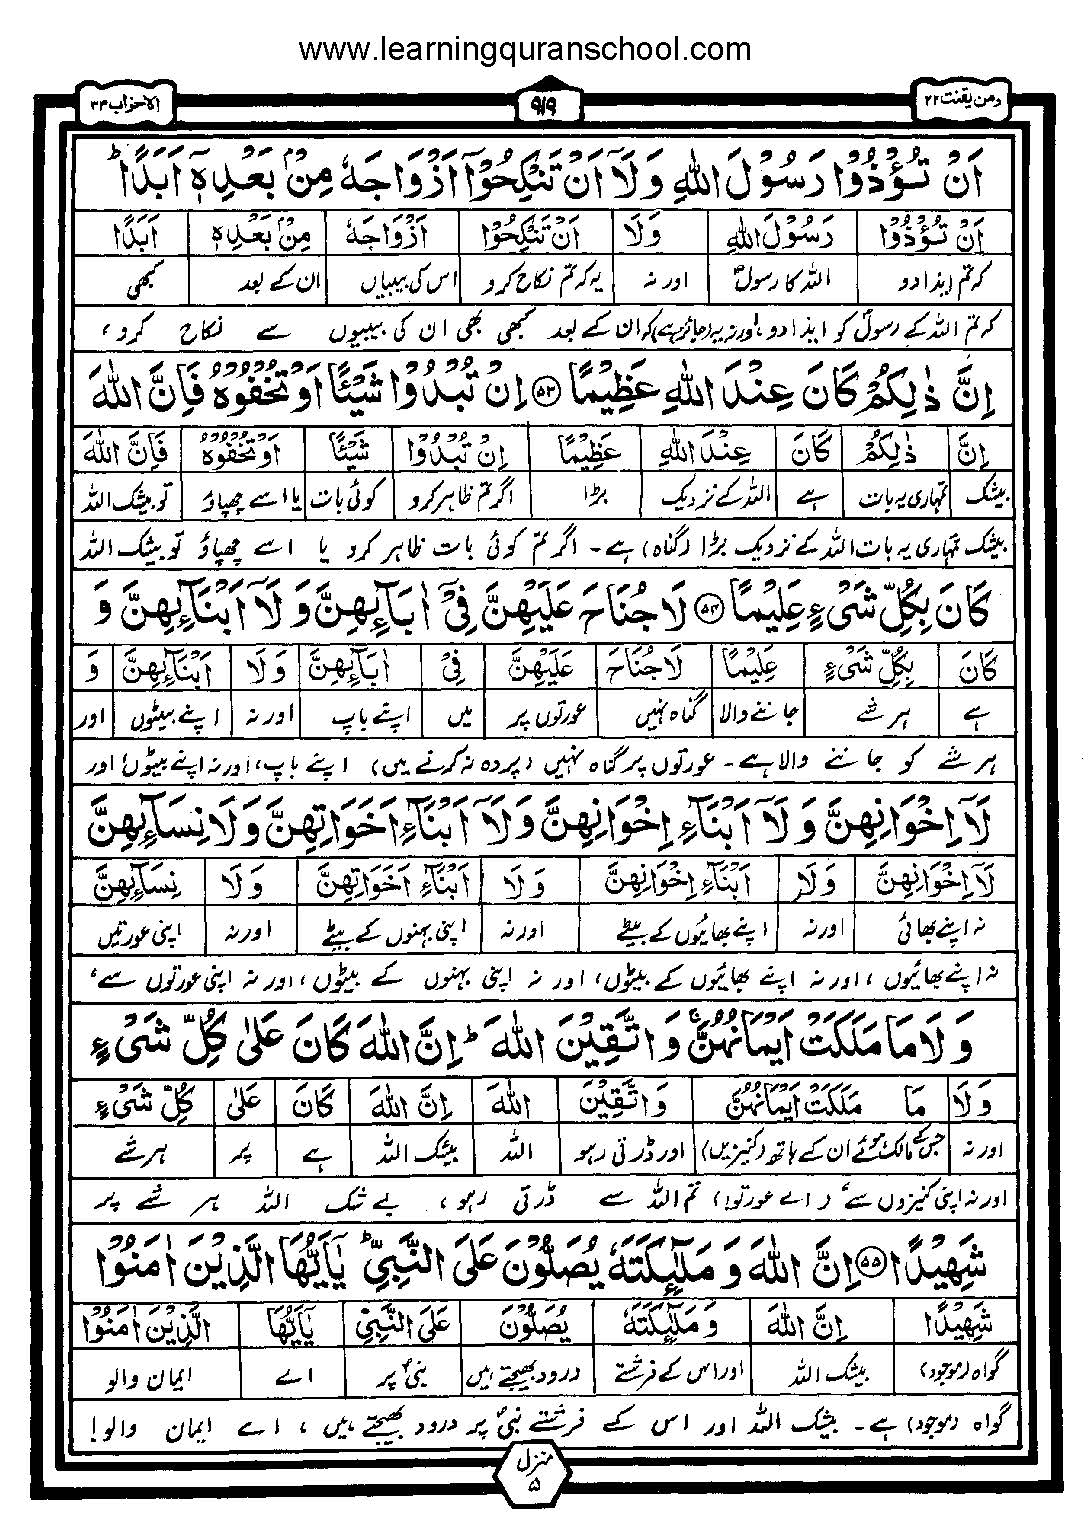 www.learningquranschool.com
ومن یقنت ۲۲
۹۱۹
الاحزاب ۳۳
اَنْ تُؤْذُوْا رَسُوْلَ اللّٰهِ وَلَاۤ اَنْ تَنْكِحُوْۤا اَزْوَاجَهٗ مِنْۢ بَعْدِهٖۤ اَبَدًا ؕ
اَنْ تُؤْذُوْا رَسُوْلَ اللّٰهِ وَلَا اَنْ تَنْكِحُوْا اَزْوَاجَهٗ مِنْۢ بَعْدِهٖ اَبَدًا
کہ تم ایذا دو اللہ کا رسولؐ اور نہ یہ کہ تم نکاح کرو اس کی بیبیاں ان کے بعد کبھی
کہ تم اللہ کے رسولؐ کو ایذا دو، اور نہ یہ (جائز ہے) کہ ان کے بعد کبھی بھی ان کی بیبیوں سے نکاح کرو،
اِنَّ ذٰلِكُمْ كَانَ عِنْدَ اللّٰهِ عَظِيْمًا ﴿۵۳﴾ اِنْ تُبْدُوْا شَيْئًا اَوْ تُخْفُوْهُ فَاِنَّ اللّٰهَ
اِنَّ ذٰلِكُمْ كَانَ عِنْدَ اللّٰهِ عَظِيْمًا اِنْ تُبْدُوْا شَيْئًا اَوْ تُخْفُوْهُ فَاِنَّ اللّٰهَ
بیشک تمہاری یہ بات ہے اللہ کے نزدیک بڑا اگر تم ظاہر کرو کوئی بات یا اسے چھپاؤ تو بیشک اللہ
بیشک تمہاری یہ بات اللہ کے نزدیک بڑا (گناہ) ہے۔ اگر تم کوئی بات ظاہر کرو یا اسے چھپاؤ تو بیشک اللہ
كَانَ بِكُلِّ شَيْءٍ عَلِيْمًا ﴿۵۴﴾ لَا جُنَاحَ عَلَيْهِنَّ فِيْۤ اٰبَآئِهِنَّ وَلَاۤ اَبْنَآئِهِنَّ وَ
كَانَ بِكُلِّ شَيْءٍ عَلِيْمًا لَا جُنَاحَ عَلَيْهِنَّ فِيْ اٰبَآئِهِنَّ وَلَا اَبْنَآئِهِنَّ وَ
ہے ہر شے جاننے والا گناہ نہیں عورتوں پر میں اپنے باپ اور نہ اپنے بیٹوں اور
ہر شے کو جاننے والا ہے۔ عورتوں پر گناہ نہیں (پردہ نہ کرنے میں) اپنے باپ، اور نہ اپنے بیٹوں، اور
لَاۤ اِخْوَانِهِنَّ وَلَاۤ اَبْنَآءِ اِخْوَانِهِنَّ وَلَاۤ اَبْنَآءِ اَخَوَاتِهِنَّ وَلَا نِسَآئِهِنَّ
لَاۤ اِخْوَانِهِنَّ وَلَا اَبْنَآءِ اِخْوَانِهِنَّ وَلَا اَبْنَآءِ اَخَوَاتِهِنَّ وَلَا نِسَآئِهِنَّ
نہ اپنے بھائی اور نہ اپنے بھائیوں کے بیٹے اور نہ اپنی بہنوں کے بیٹے اور نہ اپنی عورتیں
نہ اپنے بھائیوں، اور نہ اپنے بھائیوں کے بیٹوں، اور نہ اپنی بہنوں کے بیٹوں، اور نہ اپنی عورتوں سے،
وَلَا مَا مَلَكَتْ اَيْمَانُهُنَّ ۚ وَاتَّقِيْنَ اللّٰهَ ؕ اِنَّ اللّٰهَ كَانَ عَلٰى كُلِّ شَيْءٍ
وَلَا مَا مَلَكَتْ اَيْمَانُهُنَّ وَاتَّقِيْنَ اللّٰهَ اِنَّ اللّٰهَ كَانَ عَلٰى كُلِّ شَيْءٍ
اور نہ جس کے مالک ہوئے ان کے ہاتھ (کنیزیں) اور ڈرتی رہو اللہ بیشک اللہ ہے پر ہر شے
اور نہ اپنی کنیزوں سے، (اے عورتو!) تم اللہ سے ڈرتی رہو، بے شک اللہ ہر شے پر
شَهِيْدًا ﴿۵۵﴾ اِنَّ اللّٰهَ وَمَلٰٓئِكَتَهٗ يُصَلُّوْنَ عَلَى النَّبِيِّ ؕ يٰۤاَيُّهَا الَّذِيْنَ اٰمَنُوْا
شَهِيْدًا اِنَّ اللّٰهَ وَمَلٰٓئِكَتَهٗ يُصَلُّوْنَ عَلَى النَّبِيِّ يٰۤاَيُّهَا الَّذِيْنَ اٰمَنُوْا
گواہ (موجود) بیشک اللہ اور اس کے فرشتے درود بھیجتے ہیں نبیؐ پر اے ایمان والو
گواہ (موجود) ہے۔ بیشک اللہ اور اس کے فرشتے نبیؐ پر درود بھیجتے ہیں، اے ایمان والو!
منزل
۵